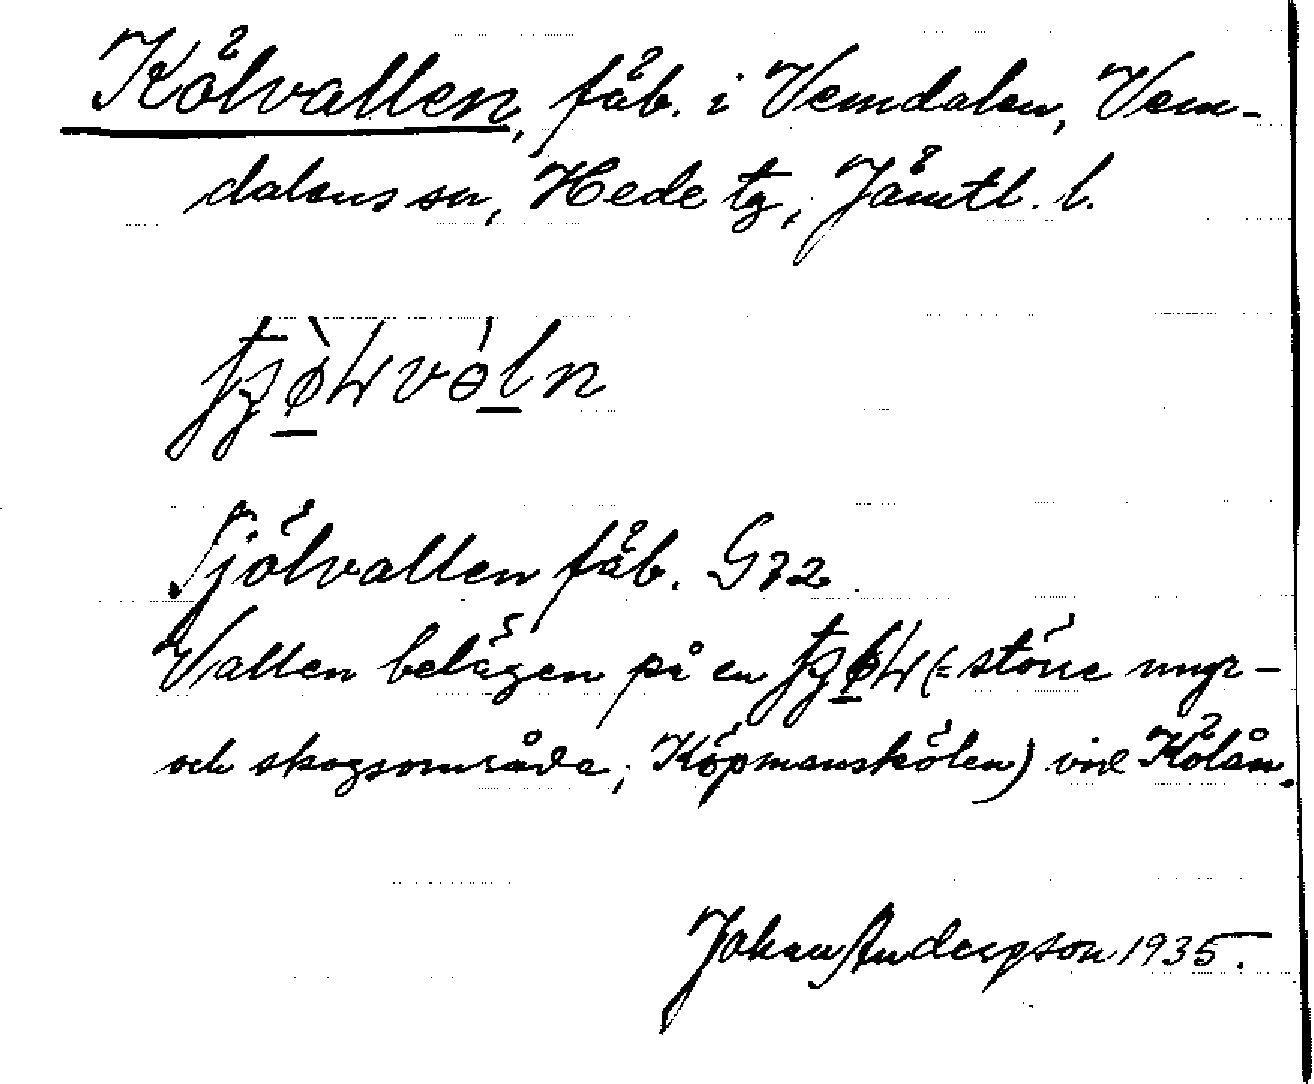 Kölvallen, fäb. i Vemdalen, Vem-
dalens sn, Hede tg, Jämtl. l.
Tjölvallen fäb. G72
Vallen belägen på en (= större myr-
och skogsområde; Köpmanskölen) vid Kölån.
Johan Anderson 1935.